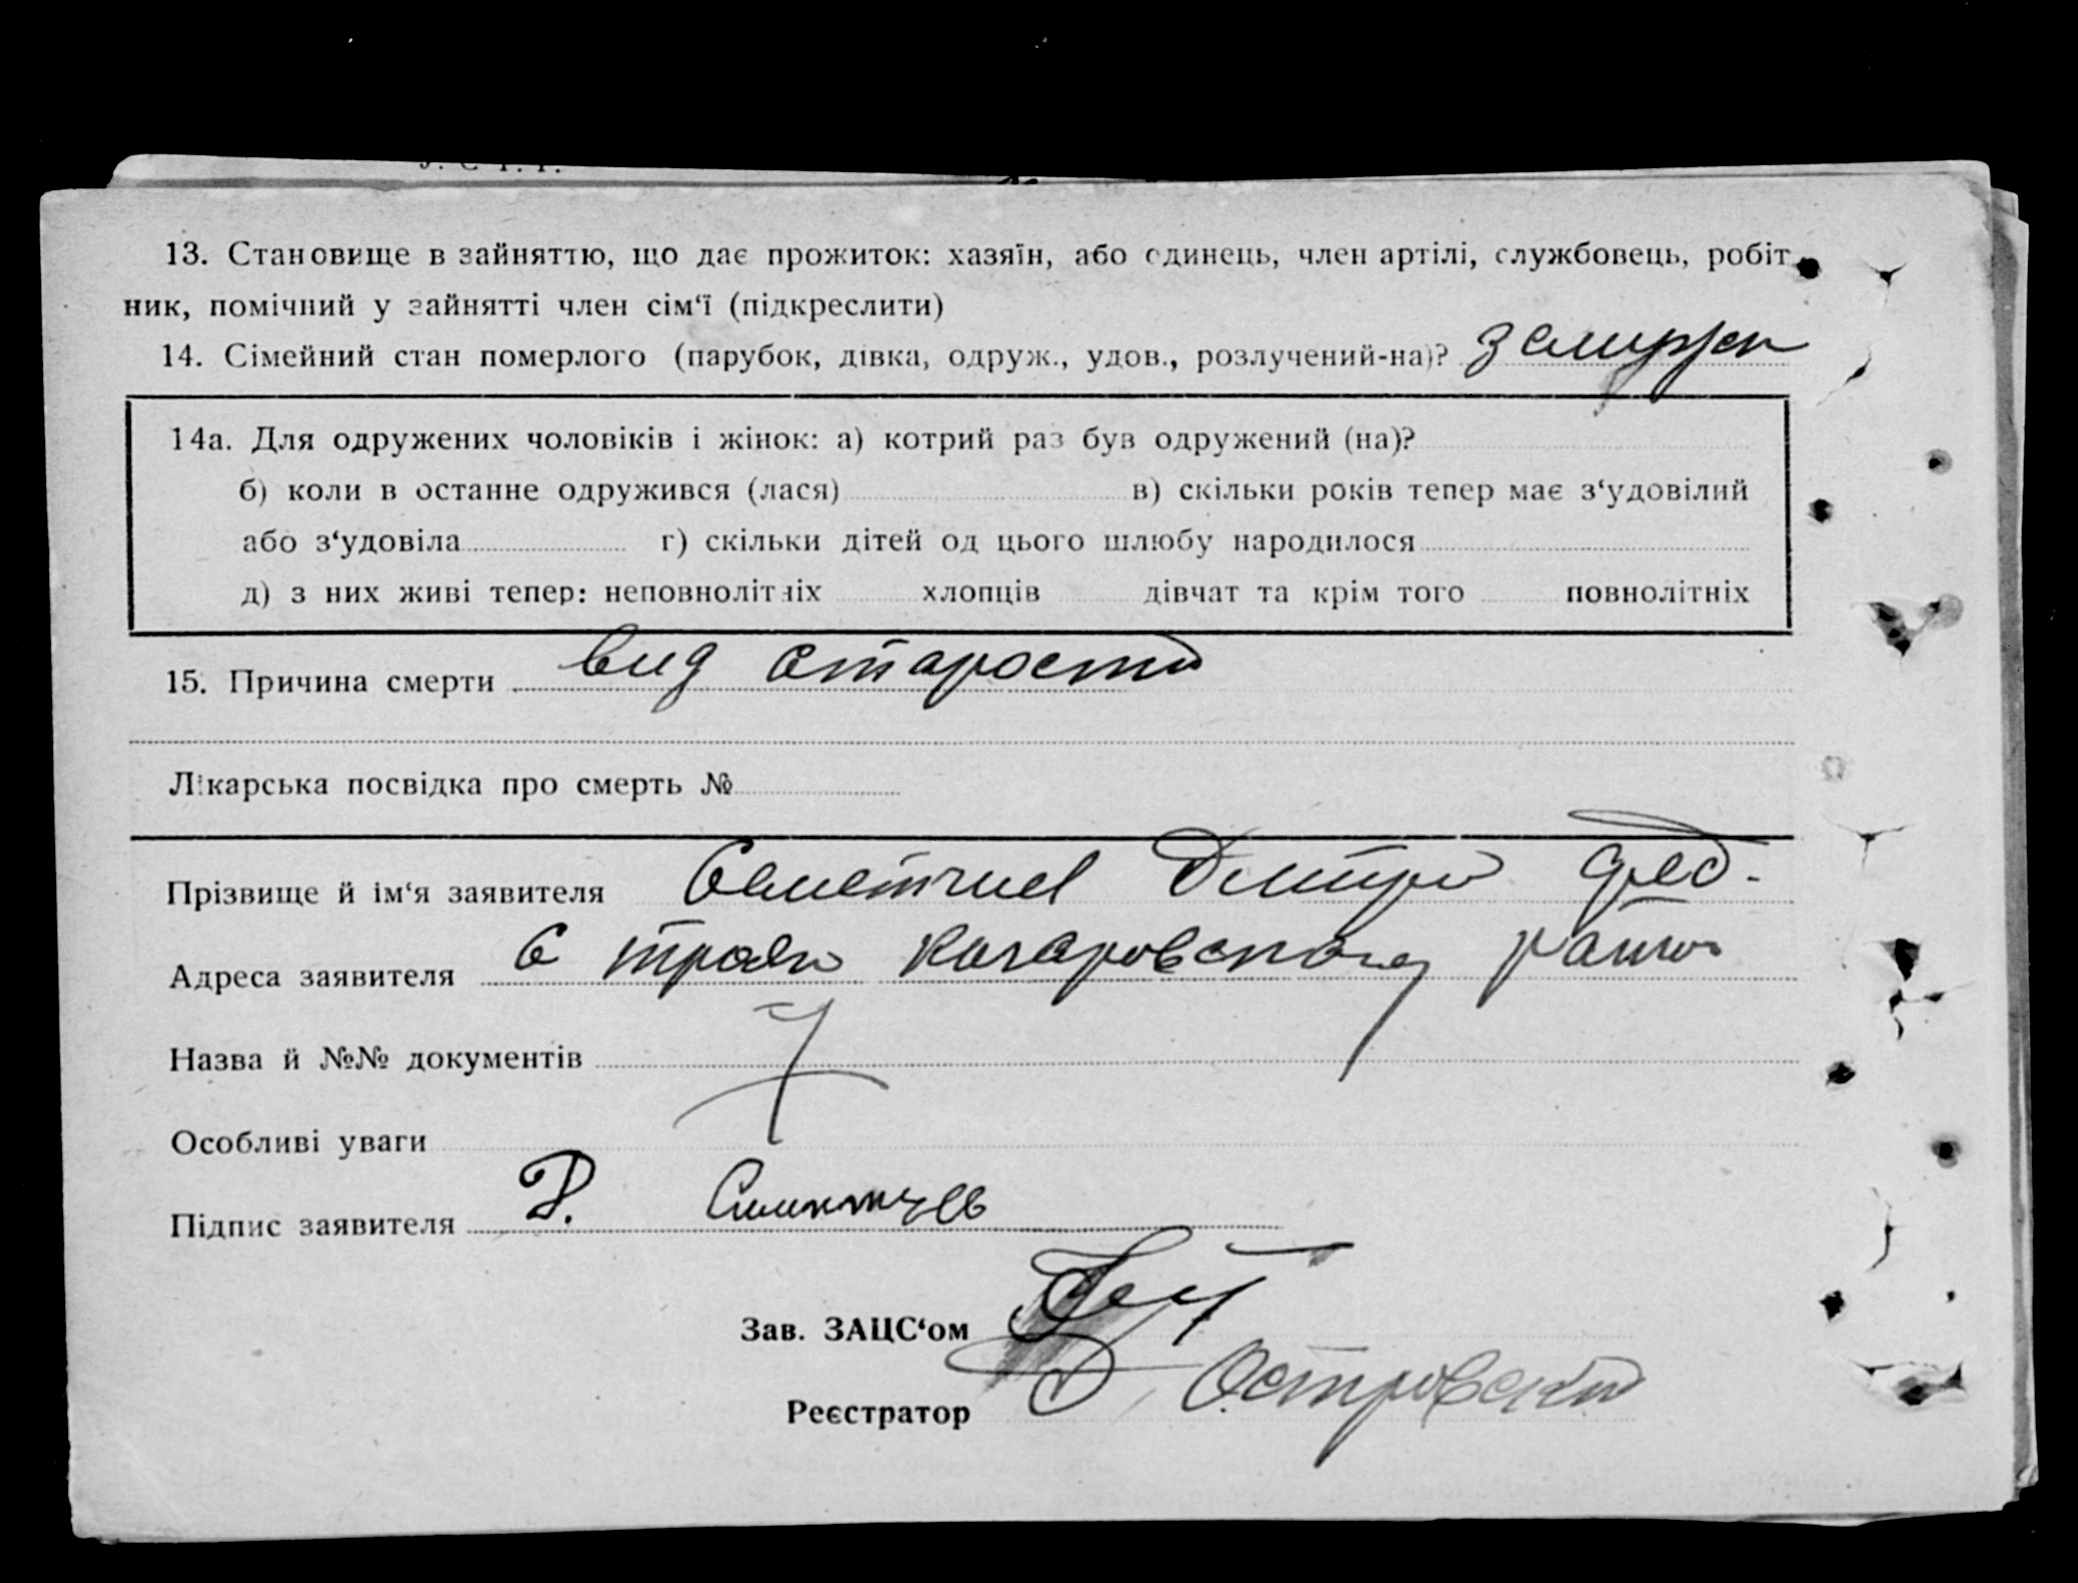 13. Становище в зайняттю, що дає прожиток: хазяїн, або одинець, член артілі, службовець, робіт
ник, помічний у зайнятті член сім‘ї (підкреслити)
14. Сімейний стан померлого (парубок, дівка, одруж., удов., розлучений-на)? замужем
14а. Для одружених чоловіків і жінок: а) котрий раз був одружений (на)?
б) коли в останне одружився (лася) в) скільки років тепер має з‘удовілий
або з‘удовіла г) скільки дітей од цього шлюбу народилося
д) з них живі тепер: неповнолітніх хлопців дівчат та крім того повнолітніх
15. Причина смерти вид старости
Лікарська посвідка про смерть №
Прізвище й ім‘я заявителя Дмитри Фед.
Адреса заявителя с
Назва й №№ документів
Особливі уваги
Підпис заявителя Д.
Зав. ЗАЦС‘ом
Реєстратор Островский